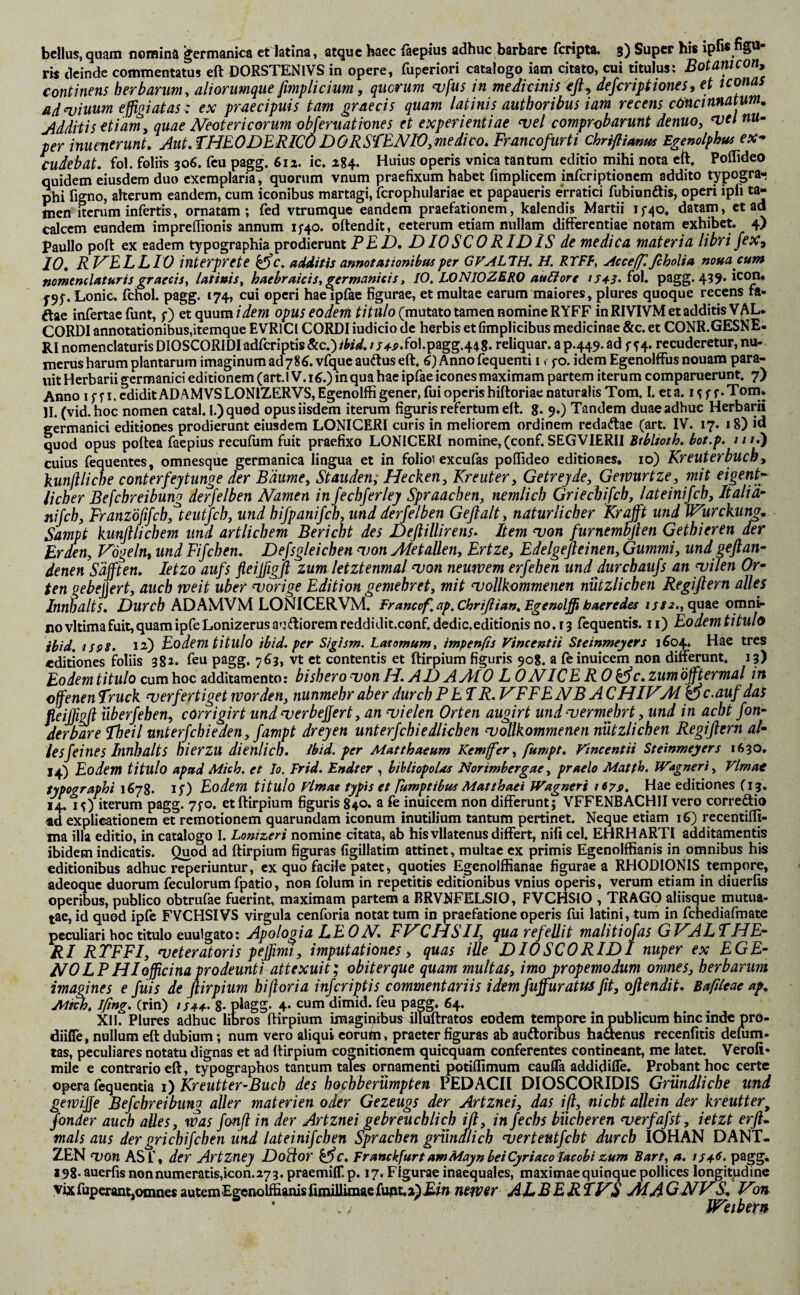 bellus, quam nomina germanica et latina, atque haec ſaepius adhuc barbare ſcripta. 3) Super his ipſis figu-
ris deinde commentatus eſt DORSTENIVS in opere, ſuperiori catalogo iam citato, cui titulus: Botanicon,
continens herbarum, aliorumque ſimplicium, quorum vſus in medicinis eſt, deſcriptiones, et iconas
ad viuum effigiatas: ex praecipuis tam graecis quam latinis authoribus iam recens concinnatum.
Additis etiam, quae Neotericorum obſeruationes et experientiae vel comprobarunt denuo, vel nu-
per inuenerunt. Aut. THEODERICO DORSTENIO, medico. Francofurti Chriſtianus Egenolphus ex-
cudebat. fol. foliis 306. ſeu pagg. 612. ic. 284. Huius operis vnica tantum editio mihi nota eſt. Poſſideo
quidem eiusdem duo exemplaria, quorum vnum praefixum habet ſimplicem inſcriptionem addito typogra-
phi ſigno, alterum eandem, cum iconibus martagi, ſcrophulariae et papaueris erratici ſubiunctis, operi ipſi ta-
men iterum inſertis, ornatam; ſed vtrumque eandem praefationem, kalendis Martii 1540. datam, et ad
calcem eundem impreſſionis annum 1540. oſtendit, ceterum etiam nullam differentiae notam exhibet. 4)
Paullo poſt ex eadem typographia prodierunt PED. DIOSCORIDIS de medica materia libri ſex,
IO. RVELLIO interprete &c. additis annotationibus per GVALTH. H. RYFF, Acceſſ. ſcholia noua cum
nomenclaturis graecis, latinis, haebraicis, germanicis, IO. LONIOZERO auctore 1543. fol. pagg. 439. icon.
595. Lonic. ſchol. pagg. 174, cui operi hae ipſae figurae, et multae earum maiores, plures quoque recens fa-
ctae inſertae ſunt, 5) et quum idem opus eodem titulo (mutato tamen nomine RYFF in RIVIVM et additis VAL.
CORDI annotationibus, itemque EVRICI CORDI iudicio de herbis et ſimplicibus medicinae &c. et CONR. GESNE-
RI nomenclaturis DIOSCORIDI adſcriptis &c.) ibid. 1549. fol. pagg. 448. reliquar. a p. 449. ad 554. recuderetur, nu-
merus harum plantarum imaginum ad 786. vſque auctus eſt. 6) Anno ſequenti 1550. idem Egenolffus nouam para-
uit Herbarii germanici editionem (art. IV. 16.) in qua hae ipſae icones maximam partem iterum comparuerunt. 7)
Anno 1551. edidit ADAMVS LONIZERVS, Egenolffi gener, ſui operis hiſtoriae naturalis Tom. I. et a. 1555. Tom.
II. (vid. hoc nomen catal. I.) quod opus iisdem iterum figuris refertum eſt. 8. 9.) Tandem duae adhuc Herbarii
germanici editiones prodierunt eiusdem LONICERI curis in meliorem ordinem redactae (art. IV. 17. 18) id
quod opus poſtea ſaepius recuſum fuit praefixo LONICERI nomine, (conf. SEGVIERII Biblioth. bot. p. 111.)
cuius ſequentes, omnesque germanica lingua et in folio excuſas poſſideo editiones. 10) Kreuterbuch,
kunſtliche conterfeytunge der Bäume, Stauden, Hecken, Kreuter, Getreyde, Gewurtze, mit eigent-
licher Beſchreibung derſelben Namen in ſechſerley Spraachen, nemlich Griechiſch, lateiniſch, Italiä-
niſch, Franzöſiſch, teutſch, und hiſpaniſch, und derſelben Geſtalt, naturlicher Krafft und Wurckung.
Sampt kunſtlichem und artlichem Bericht des Deſtillirens. Item von furnembſten Gethieren der
Erden, Vögeln, und Fiſchen. Deſsgleichen von Metallen, Ertze, Edelgeſteinen, Gummi, und geſtan-
denen Säfften. Ietzo aufs fleiſſigſt zum letztenmal von neuwem erſehen und durchaufs an vilen Or-
ten gebeſſert, auch weit uber vorige Edition gemehret, mit vollkommenen nützlichen Regiſtern alles
Innhalts. Durch ADAMVM LONICERVM. Francof. ap. Chriſtian. Egenolffi haeredes 1582., quae omni-
no vltima fuit, quam ipſe Lonizerus auctiorem reddidit. conf. dedic. editionis no. 13 ſequentis. 11) Eodem titulo
ibid. 1598. 12) Eodem titulo ibid. per Sigism. Latomum, impenſis Vincentii Steinmeyers 1604. Hae tres
editiones foliis 382. ſeu pagg. 763, vt et contentis et ſtirpium figuris 908. a ſe inuicem non differunt. 13)
Eodem titulo cum hoc additamento: bishero von H. ADAMO LONICERO &c. zum öfftermal in
offenen Truck verfertiget worden, nunmehr aber durch PETR. VFFENBACHIVM &c. auf das
fleiſſigſt überſehen, corrigirt und verbeſſert, an vielen Orten augirt und vermehrt, und in acht ſon-
derbare Theil unterſchieden, ſampt dreyen unterſchiedlichen vollkommenen nützlichen Regiſtern al-
les ſeines Innhalts hierzu dienlich. ibid. per Matthaeum Kempffer, ſumpt. Vincentii Steinmeyers 1630.
14) Eodem titulo apud Mich. et Io. Frid. Endter, bibliopolas Norimbergae, praelo Matth. Wagneri, Vlmae
typographi 1678. 15) Eodem titulo Vlmae typis et ſumptibus Matthaei Wagneri 1679. Hae editiones (13.
14. 15) iterum pagg. 750. et ſtirpium figuris 840. a ſe inuicem non differunt; VFFENBACHII vero correctio
ad explicationem et remotionem quarundam iconum inutilium tantum pertinet. Neque etiam 16) recentiſſi-
ma illa editio, in catalogo I. Lonizeri nomine citata, ab his vllatenus differt, niſi cel. EHRHARTI additamentis
ibidem indicatis. Quod ad ſtirpium figuras ſigillatim attinet, multae ex primis Egenolffianis in omnibus his
editionibus adhuc reperiuntur, ex quo facile patet, quoties Egenolffianae figurae a RHODIONIS tempore,
adeoque duorum ſeculorum ſpatio, non ſolum in repetitis editionibus vnius operis, verum etiam in diuerſis
operibus, publico obtruſae fuerint, maximam partem a BRVNFELSIO, FVCHSIO, TRAGO aliisque mutua-
tae, id quod ipſe FVCHSIVS virgula cenſoria notat tum in praefatione operis ſui latini, tum in ſchediaſmate
peculiari hoc titulo euulgato: Apologia LEON. FVCHSII, qua refellit malitioſas GVALTHE-
RI RYFFI, veteratoris peſſimi, imputationes, quas ille DIOSCORIDI nuper ex EGE-
NOLPHI officina prodeunti attexuit; obiterque quam multas, imo propemodum omnes, herbarum
imagines e ſuis de ſtirpium hiſtoria inſcriptis commentariis idem ſuffuratus ſit, oſtendit. Baſileae ap.
Mich. Iſing. (rin) 1544. 8. plagg. 4. cum dimid. ſeu pagg. 64.
XII. Plures adhuc libros ſtirpium imaginibus illuſtratos eodem tempore in publicum hinc inde pro-
diiſſe, nullum eſt dubium; num vero aliqui eorum, praeter figuras ab auctoribus hactenus recenſitis deſum-
tas, peculiares notatu dignas et ad ſtirpium cognitionem quicquam conferentes contineant, me latet. Veroſi-
mile e contrario eſt, typographos tantum tales ornamenti potiſſimum cauſſa addidiſſe. Probant hoc certe
opera ſequentia 1) Kreutter-Buch des hochberümpten PEDACII DIOSCORIDIS Gründliche und
gewiſſe Beſchreibung aller materien oder Gezeugs der Artznei, das iſt, nicht allein der kreutter,
ſonder auch alles, was ſonſt in der Artznei gebreuchlich iſt, in ſechs bücheren verfaſst, ietzt erſt-
mals aus der grichiſchen und lateiniſchen Sprachen gründlich vertentſcht durch IOHAN DANT-
ZEN von AST, der Artzney Doctor &c. Franckfurt am Mayn bei Cyriaco Iacobi zum Bart, a. 1546. pagg.
198. auerſis non numeratis, icon. 273. praemiſſ. p. 17. Figurae inaequales, maximae quinque pollices longitudine
vix ſuperant, omnes autem Egenolffianis ſimillimae ſunt. 2) Ein newer ALBERTVS MAGNVS. Von
Weibern